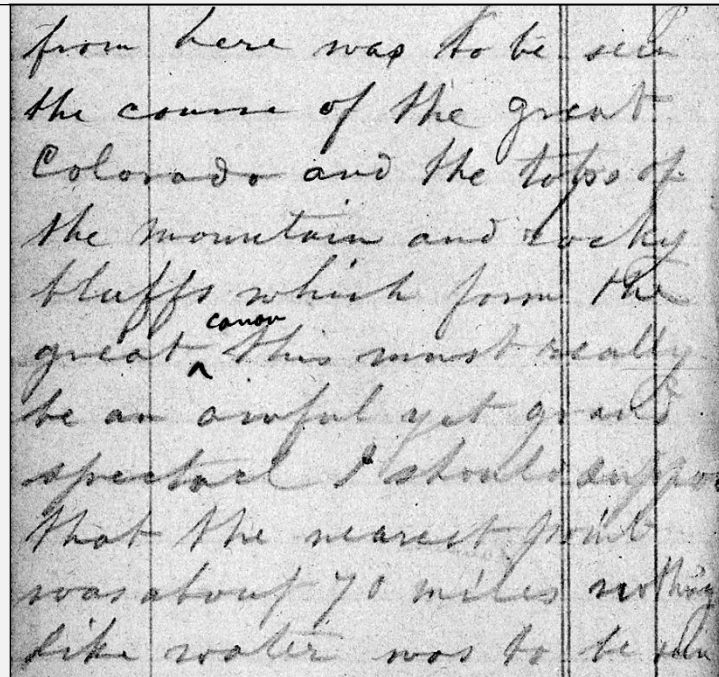 from here was to be seen
the course of the great
Colorado and the tops of
the mountain and rocky
bluffs which form the
canon
great ^ this must really
be an awful yet grand
spectacl I should suppos
that the nearest point
was about 70 miles nothing
like water was to be seen